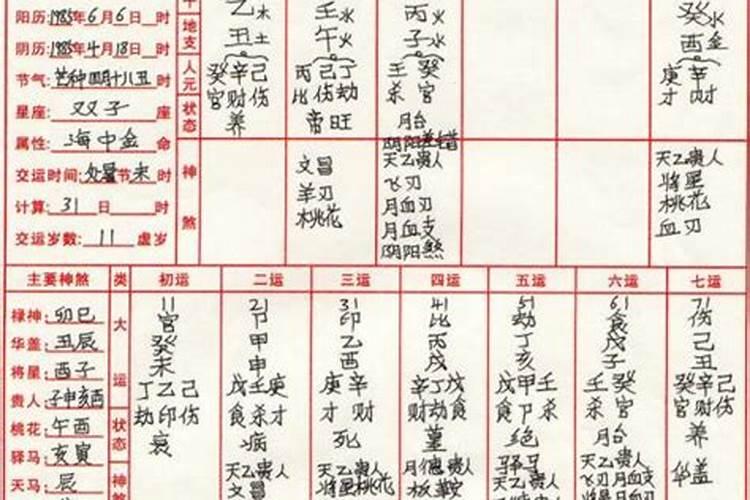 阳历:1985年6月6日 时
阴历:1985年4月18日 时
节气:芒种四月十八丑 时
星座: 双子 座
属性: 海中金 命
交运时间:处暑节末时
计算: 31 日 时
交运岁数: 11 虚岁
地支
人元
状态
神煞
乙木 壬水 丙火 癸水
丑土 午火 子水 酉金
癸辛己 丙己丁 壬癸 庚辛
官财伤 比伤劫 杀官 才财
养 帝旺 月台
阴阳差错
文昌
羊刃
桃花
天乙贵人
飞刃
月血刃
月血支
阴阳煞
天乙贵人
将星
桃花
血刃
主要神煞 类 初运 二运 三运 四运 五运 六运 七运
禄神:卯巳
华盖:丑辰
将星:酉子
贵人:子申亥酉
桃花:午酉
驿马:亥寅
天马: 辰
大运
状态
神煞
11
官
癸
未
丁乙己
劫印伤
衰
21
卩
甲
申
戊壬庚
食杀才
病
天乙贵人
文昌
31
印
乙
酉
庚辛
才财
死
天乙贵人
将星桃花
41
比
丙
戌
辛丁戊
财劫食
墓
月德贵人
板鞍
51
劫
丁
亥
戊甲壬
食卩杀
绝
驿马
天乙贵人
61
食
戊
子
壬癸
杀官
月台
天乙贵人
飞刃月血支
将星月血刃
71
伤
己
丑
癸辛己
官财伤
养
华盖